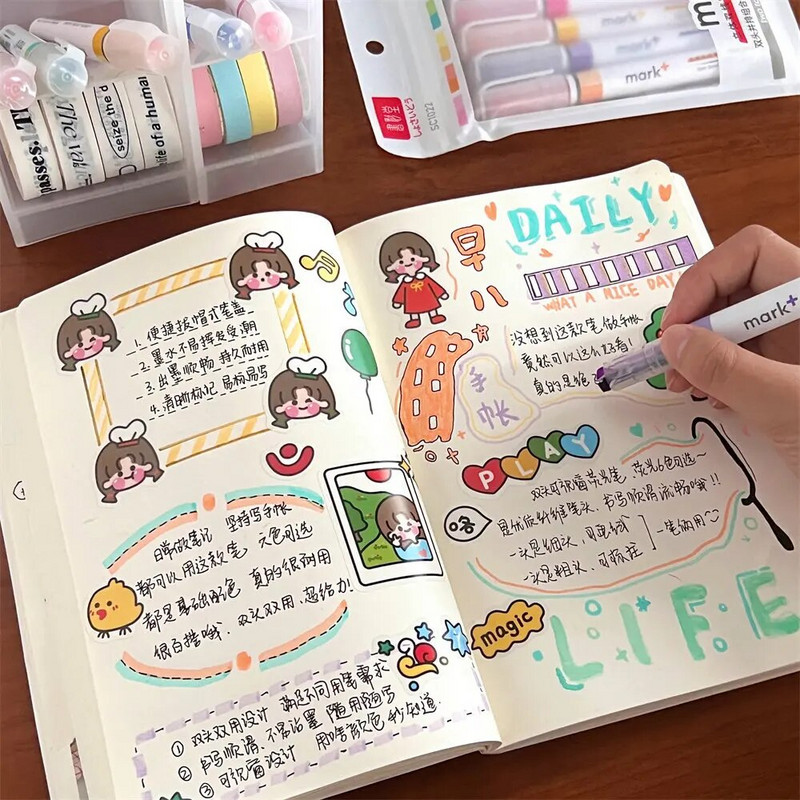 passes. T
The val
seize the d
life of a huma
mark+
mark+
mark+
m
双头并排组合
SC1022
1. 便捷拔帽式笔盖
2. 墨水不易挥发受潮
3. 出墨顺畅 持久耐用
4. 清晰标记 易标易写
日常做笔记 坚持写手帐
都可以用这款笔 六色可选
都是基础配色 真的很耐用
很百搭哦. 双头双用, 超给力!
① 双头双用设计 满足不同用笔需求
② 书写顺滑, 不易沾墨 随用随写
③ 可视窗设计 用啥颜色秒知道
DAILY
早八
WHAT A NICE DAY!
没想到这款笔做手帐
竟然可以这么好看!
真的是绝
手帐
mark+
PLAY
双头可视窗荧光笔, 荧光6色可选~
哈
是优质纤维笔头, 书写顺滑流畅哦!!
一头是细头, 可
一头是粗头, 可标注
一笔两用~
magic
LIFE